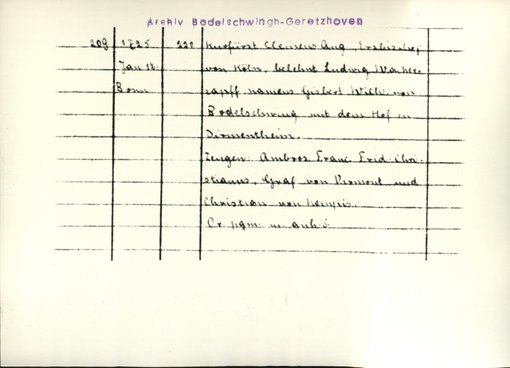 Archiv Bodelschwingh-Geretzhoven
209 1725 222 Kurfürst Clemens Aug. Erzbischof
Jan 12. von Köln, belehnt Ludwig
Bonn namens Gisbert Wilh. von
Bodelschwing mit dem Hof in
Dirmentheim.
Zeugen: Ambros. Franz. Frid. Chri-
stianus, Graf von Virmont und
Christian von
Or. pgm. m. anh. S.